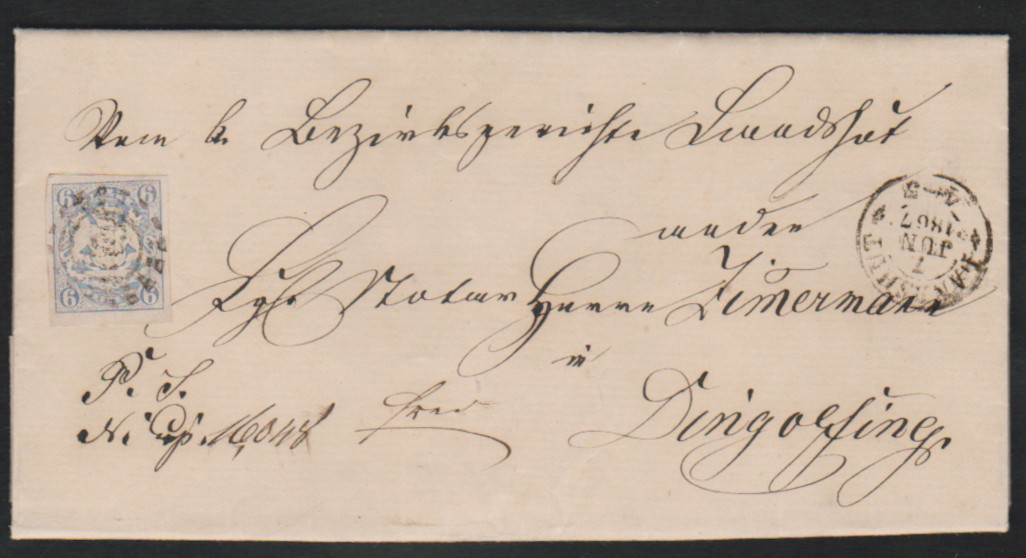 Vom k. Bezirksgerichte Landshut
an den
Kgl. Notar Herrn Zimermann
in
Dingolfing
P. S.
N. Exp. 16048
frei
6 6
6 6
LANDSHUT
7
JUN
1867